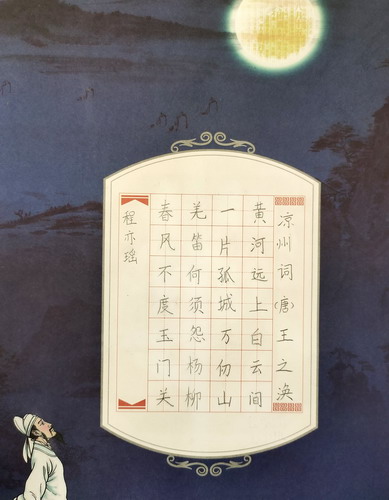 凉州词(唐)王之涣
黄河远上白云间
一片孤城万仞山
羌笛何须怨杨柳
春风不度玉门关
程亦瑶